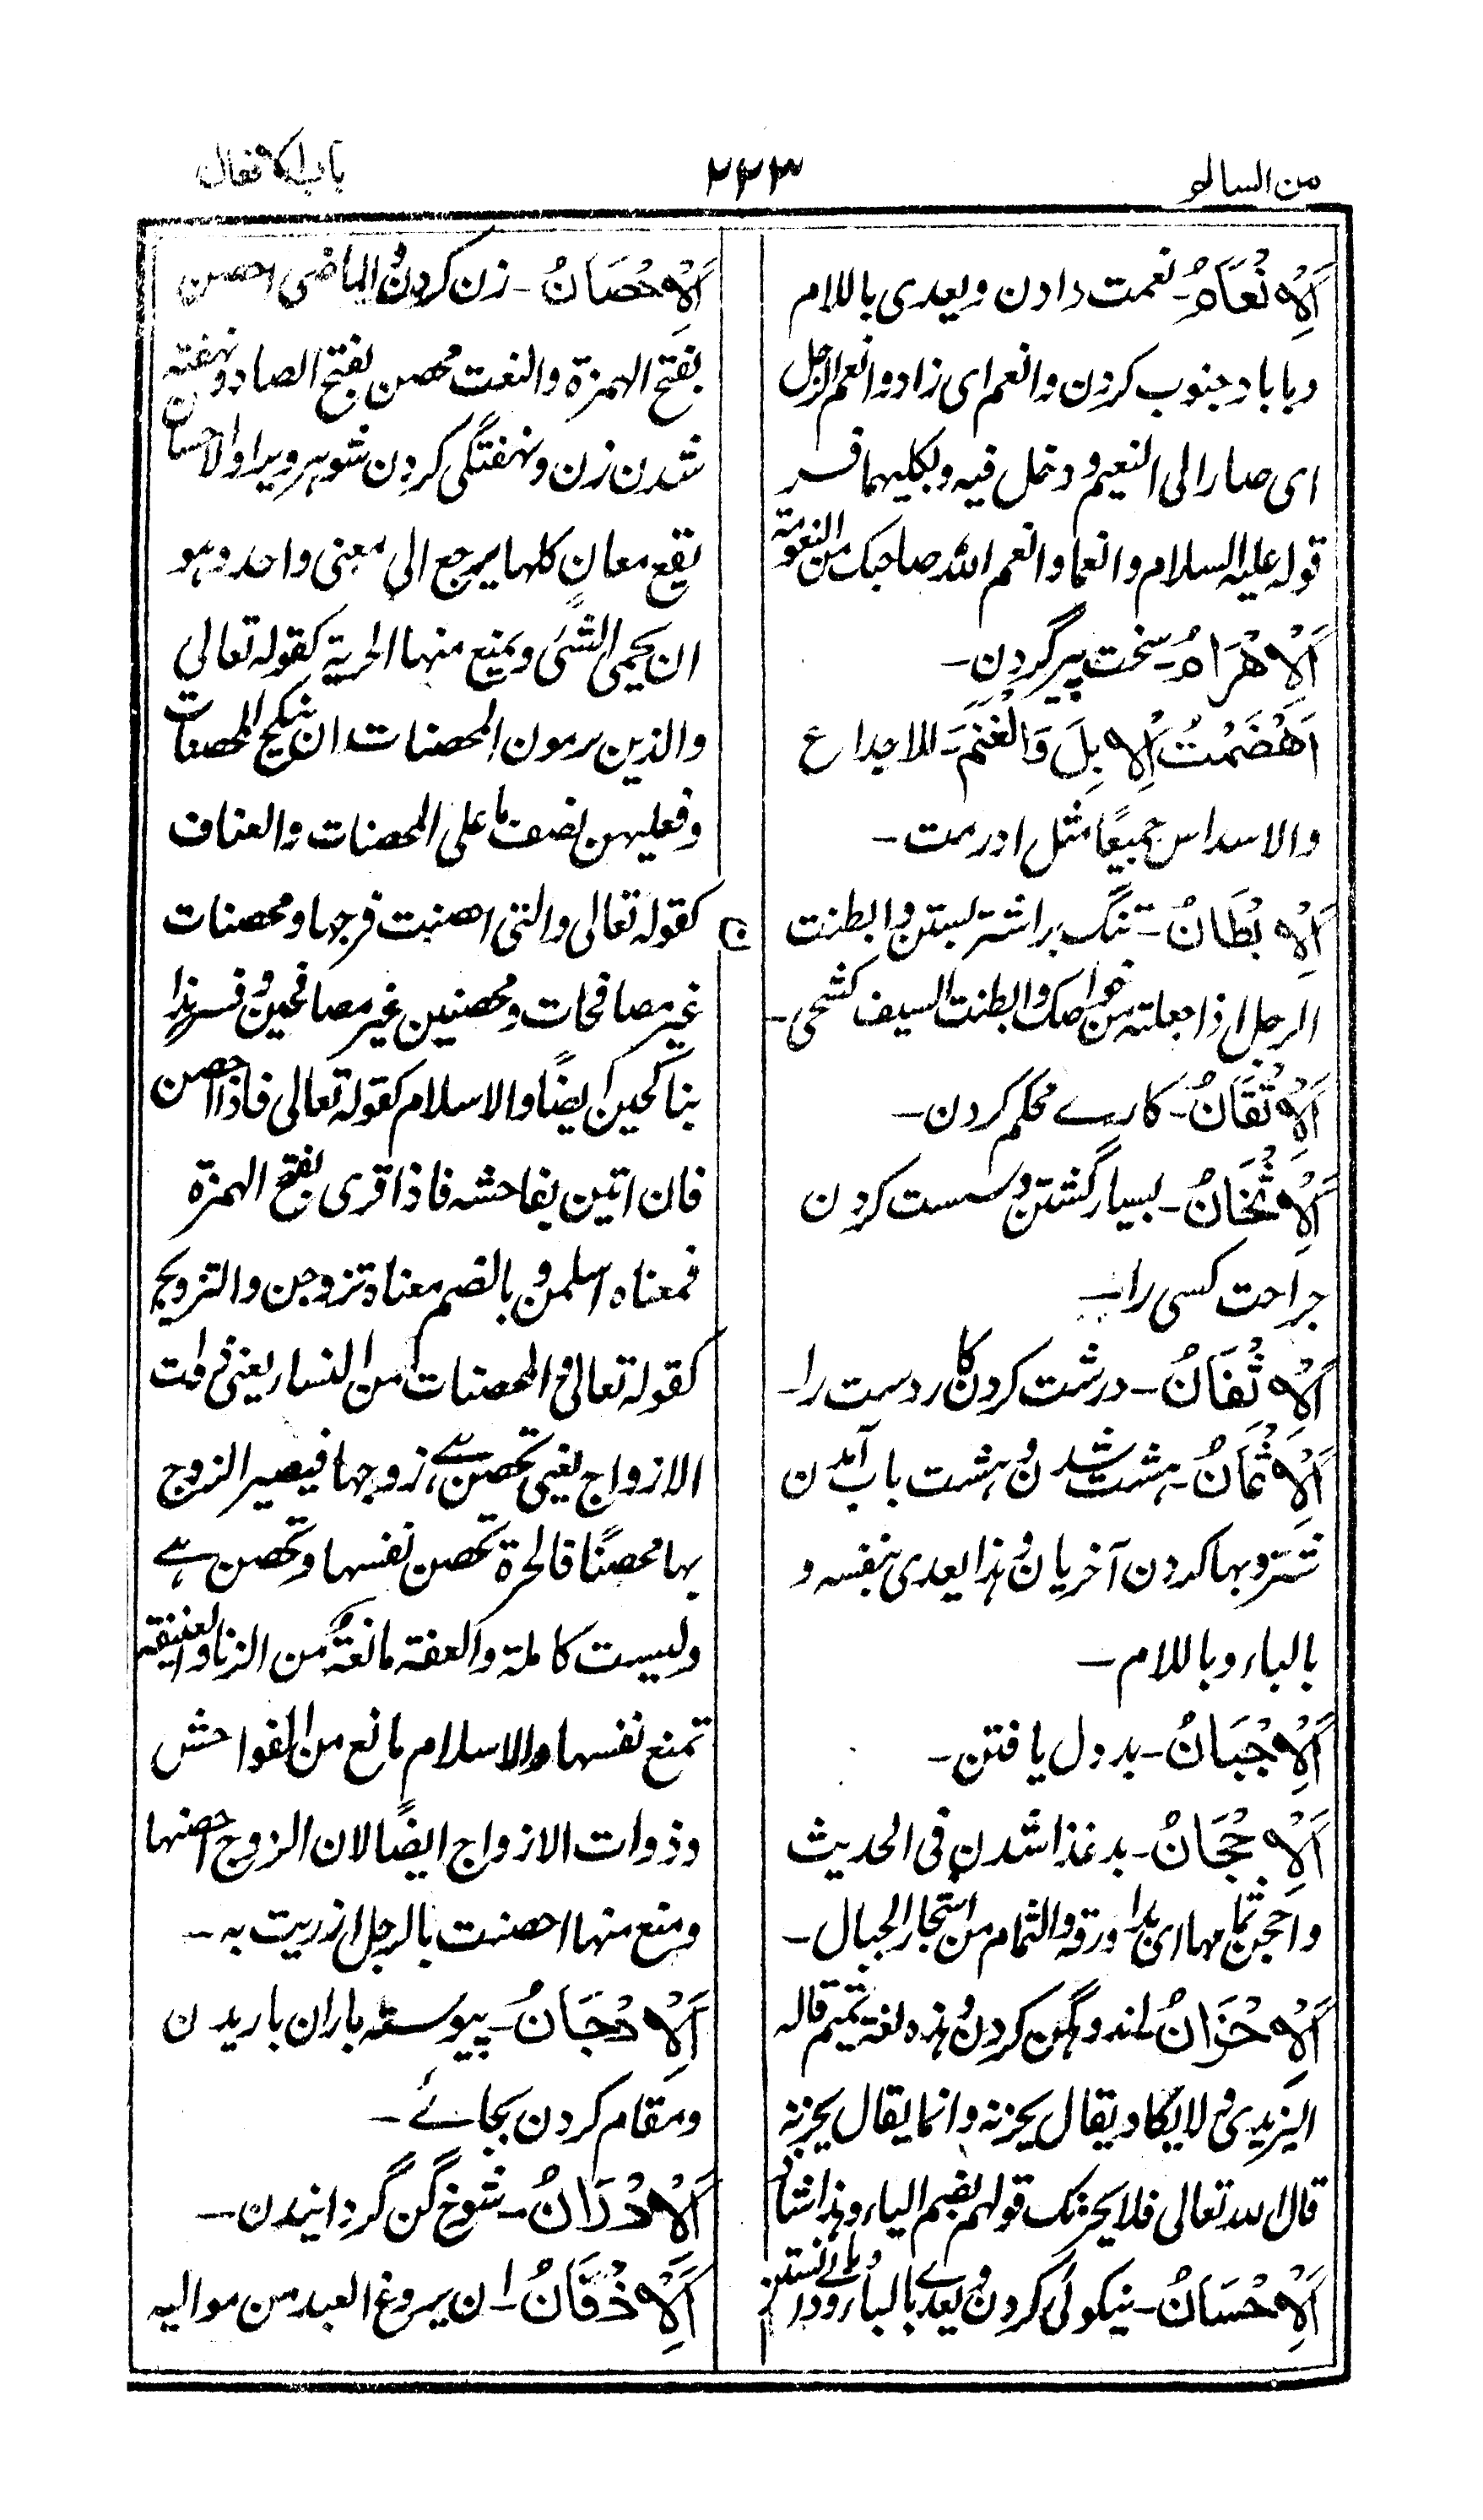 من السالم
۲۲۳
باب الافعال
اَلْاِنْعَامُ۔ نعمت دادن ویعدی باللام
وبا باد جنوب کردن وانعم ای زاد وانعم الرجل
ای صار الی النعیم و دخل فیه وبکلیهما فسر
قوله علیه السلام وانعما وانعم الله صاحبک من النعومة
اَلْاِهْرَامُ۔ سخت پیر گردن۔
اَهْضَمْتُ الْاِبِلَ وَالْغَنَمَ۔ للاجداع
والاسداس جمیعًا مثل ادرمت۔
اَلْاِبْطَانُ۔ تنگ بر اشتر بستن وابطنت ن
الرجل اذا جعلته من خواصک وابطنت السیف کشحی۔
اَلْاِتْقَانُ۔ کارے محکم کردن۔
اَلْاِثْخَانُ۔ بسیار گشتن وسست کردن
جراحت کسی را۔
اَلْاِثْفَانُ۔ درشت کردن کار دست را۔
اَلْاِثْمَانُ۔ هشت شدن و هشت باب آمدن
شتر و بها کردن آخریان و هذا یعدی بنفسه و
بالباء وباللام۔
اَلْاِجْبَانُ۔ بددل یافتن۔
اَلْاِحْجَانُ۔ بدغذا شدن فی الحدیث
واحجن ثمامها ای بدا ورقه والثمام من اشجار الجبال۔
اَلْاِحْزَانُ۔ اندوهگن کردن و هذه لغة تمیم قاله
الیزیدی و لا یکاد یقال یحزنه وانما یقال یحزنه
قال الله تعالی فلا یحزنک قولهم بضم الیاء وهذا شاذ
اَلْاِحْسَانُ۔ نیکوئی کردن و یعدے بالباء و دانستن
اَلْاِحْصَانُ۔ زن کردن و الماضی احصن
بفتح الهمزة والنعت محصن بفتح الصاد ونهفته
شدن زن ونهفتگی کردن شوهر ویرا والاحسان
یقع معانٍ کلها یرجع الی معنی واحد وهو
ان یحمی الشیٔ ویمنع منها الحریة کقوله تعالی
والذین یرمون المحصنات ان ینکح المحصنات
وفعلیهن نصف ما علی المحصنات والعفاف
کقوله تعالی والتی احصنت فرجها ومحصنات
غیر مصافحات ومحصنین غیر مصافحین و فسر هذا
بناکحین ایضًا والاسلام کقوله تعالی فاذا احصن
فان اتین بفاحشه فاذا قری بفتح الهمزة
فمعناه اسلمن و بالضم معناه تزوجن والتزویج
کقوله تعالی والمحصنات من النساء یعنی ذوات
الازواج یعنی تحصن هے زوجها فیصیر الزوج
بها محصنًا فالحرة تحصن نفسها وتحصن هے
ولیست کاملة والعفة مانعة من الزنا والعفیفة
تمنع نفسها والاسلام مانع من الفواحش
وذوات الازواج ایضًا لان الزوج احصنها
ومنع منها احصنت بالرجل ازریت به۔
اَلْاِدْجَانُ۔ پیوسته باران باریدن
ومقام کردن بجائے۔
اَلْاِدْرَانُ۔ شوخ گن گردانیدن۔
اَلْاِذْقَانُ۔ ان یروغ العبد من موالیه